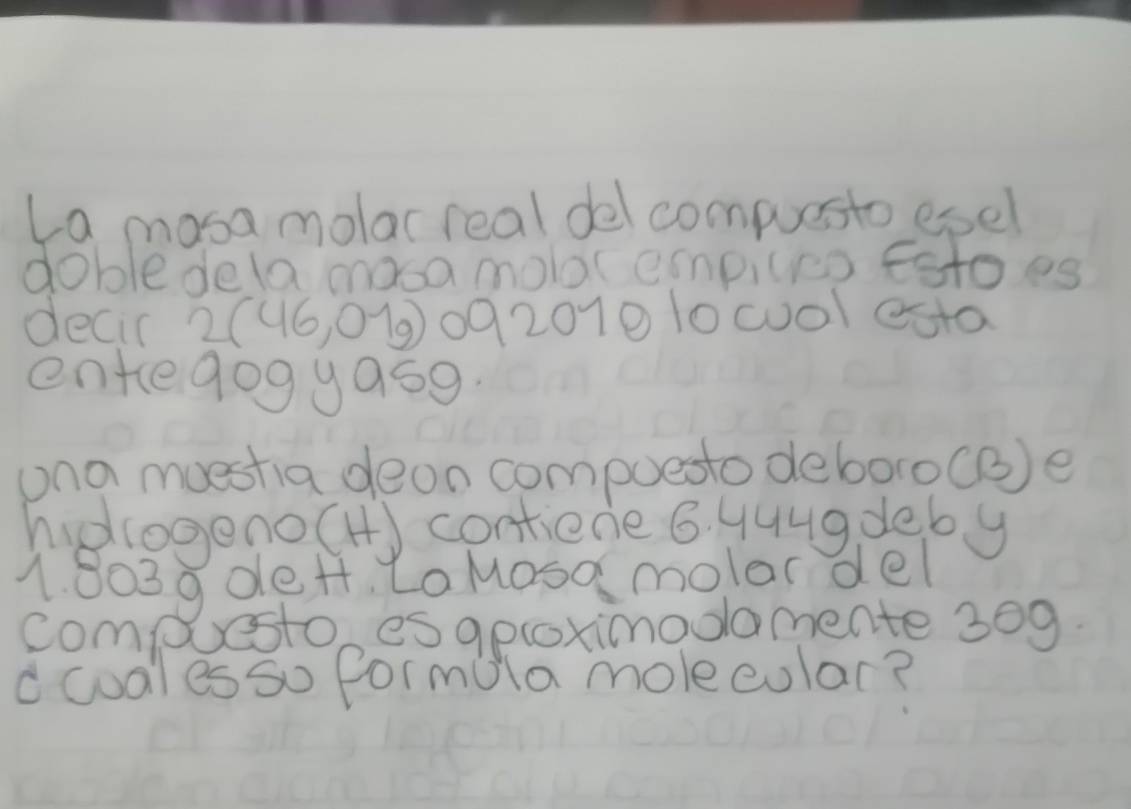 La masa molar real del compuesto es el
doble de la masa molar empirca Esto es
decir 2(46,01g) o 92010 lo cual esta
entre 90g y a5g.
una muestra deun compuesto de boro (B) e
hidrogeno (H) contiene 6.444g de b y
1.803g de H. La Masa molar del
compuesto es aproximadamente 30g.
¿cual es su formula molecular?